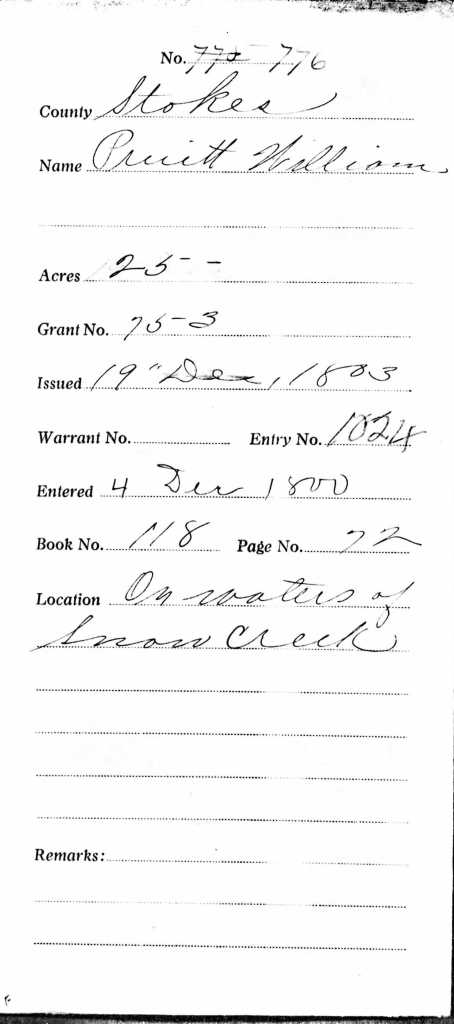 No. 775 776
County Stokes
Name Pruitt William
Acres 25 - -
Grant No. 753
Issued 19" Dec, 1803
Warrant No. Entry No. 1024
Entered 4 Dec 1800
Book No. 118 Page No. 72
Location On waters of
Snow Creek
Remarks: